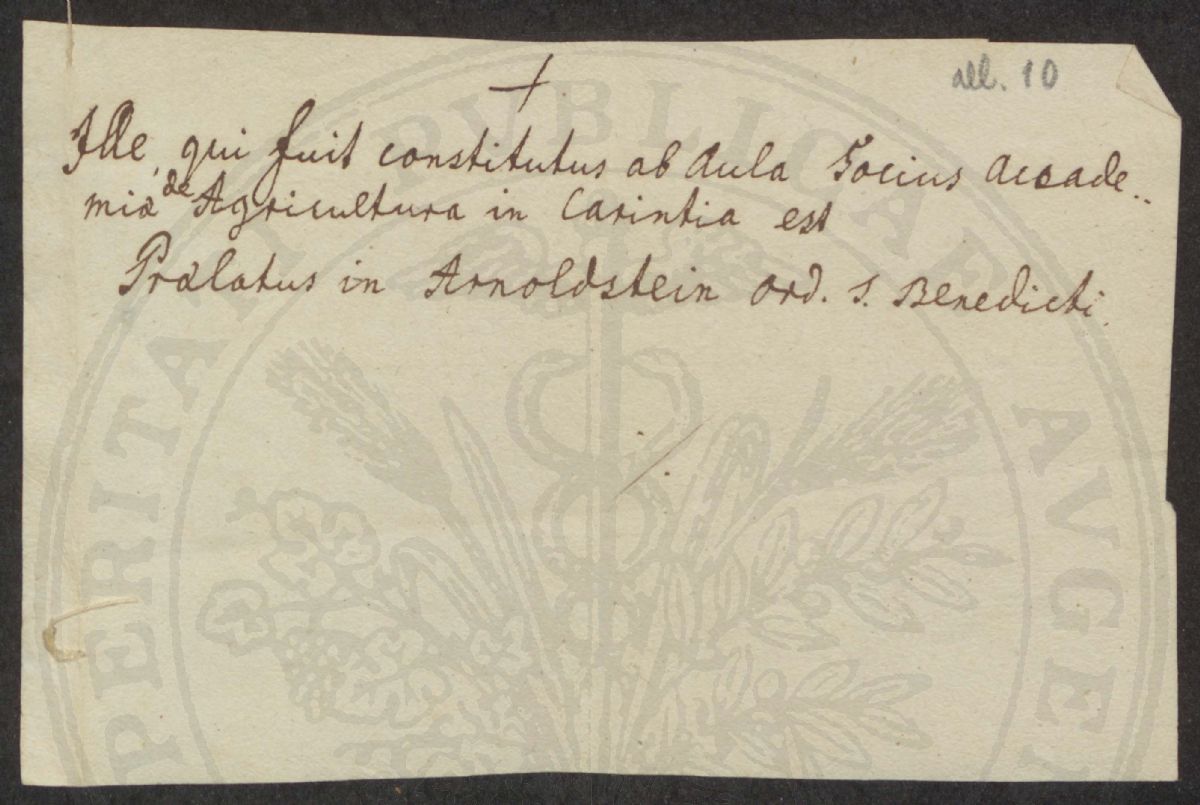 all. 10
+
Ille, qui fuit constitutus ab Aula Socius Accade..
miæ de Agricultura in Carintia est
Prælatus in Arnoldstein Ord. S. Benedicti.
PERITATI PVBLICAE AVGE